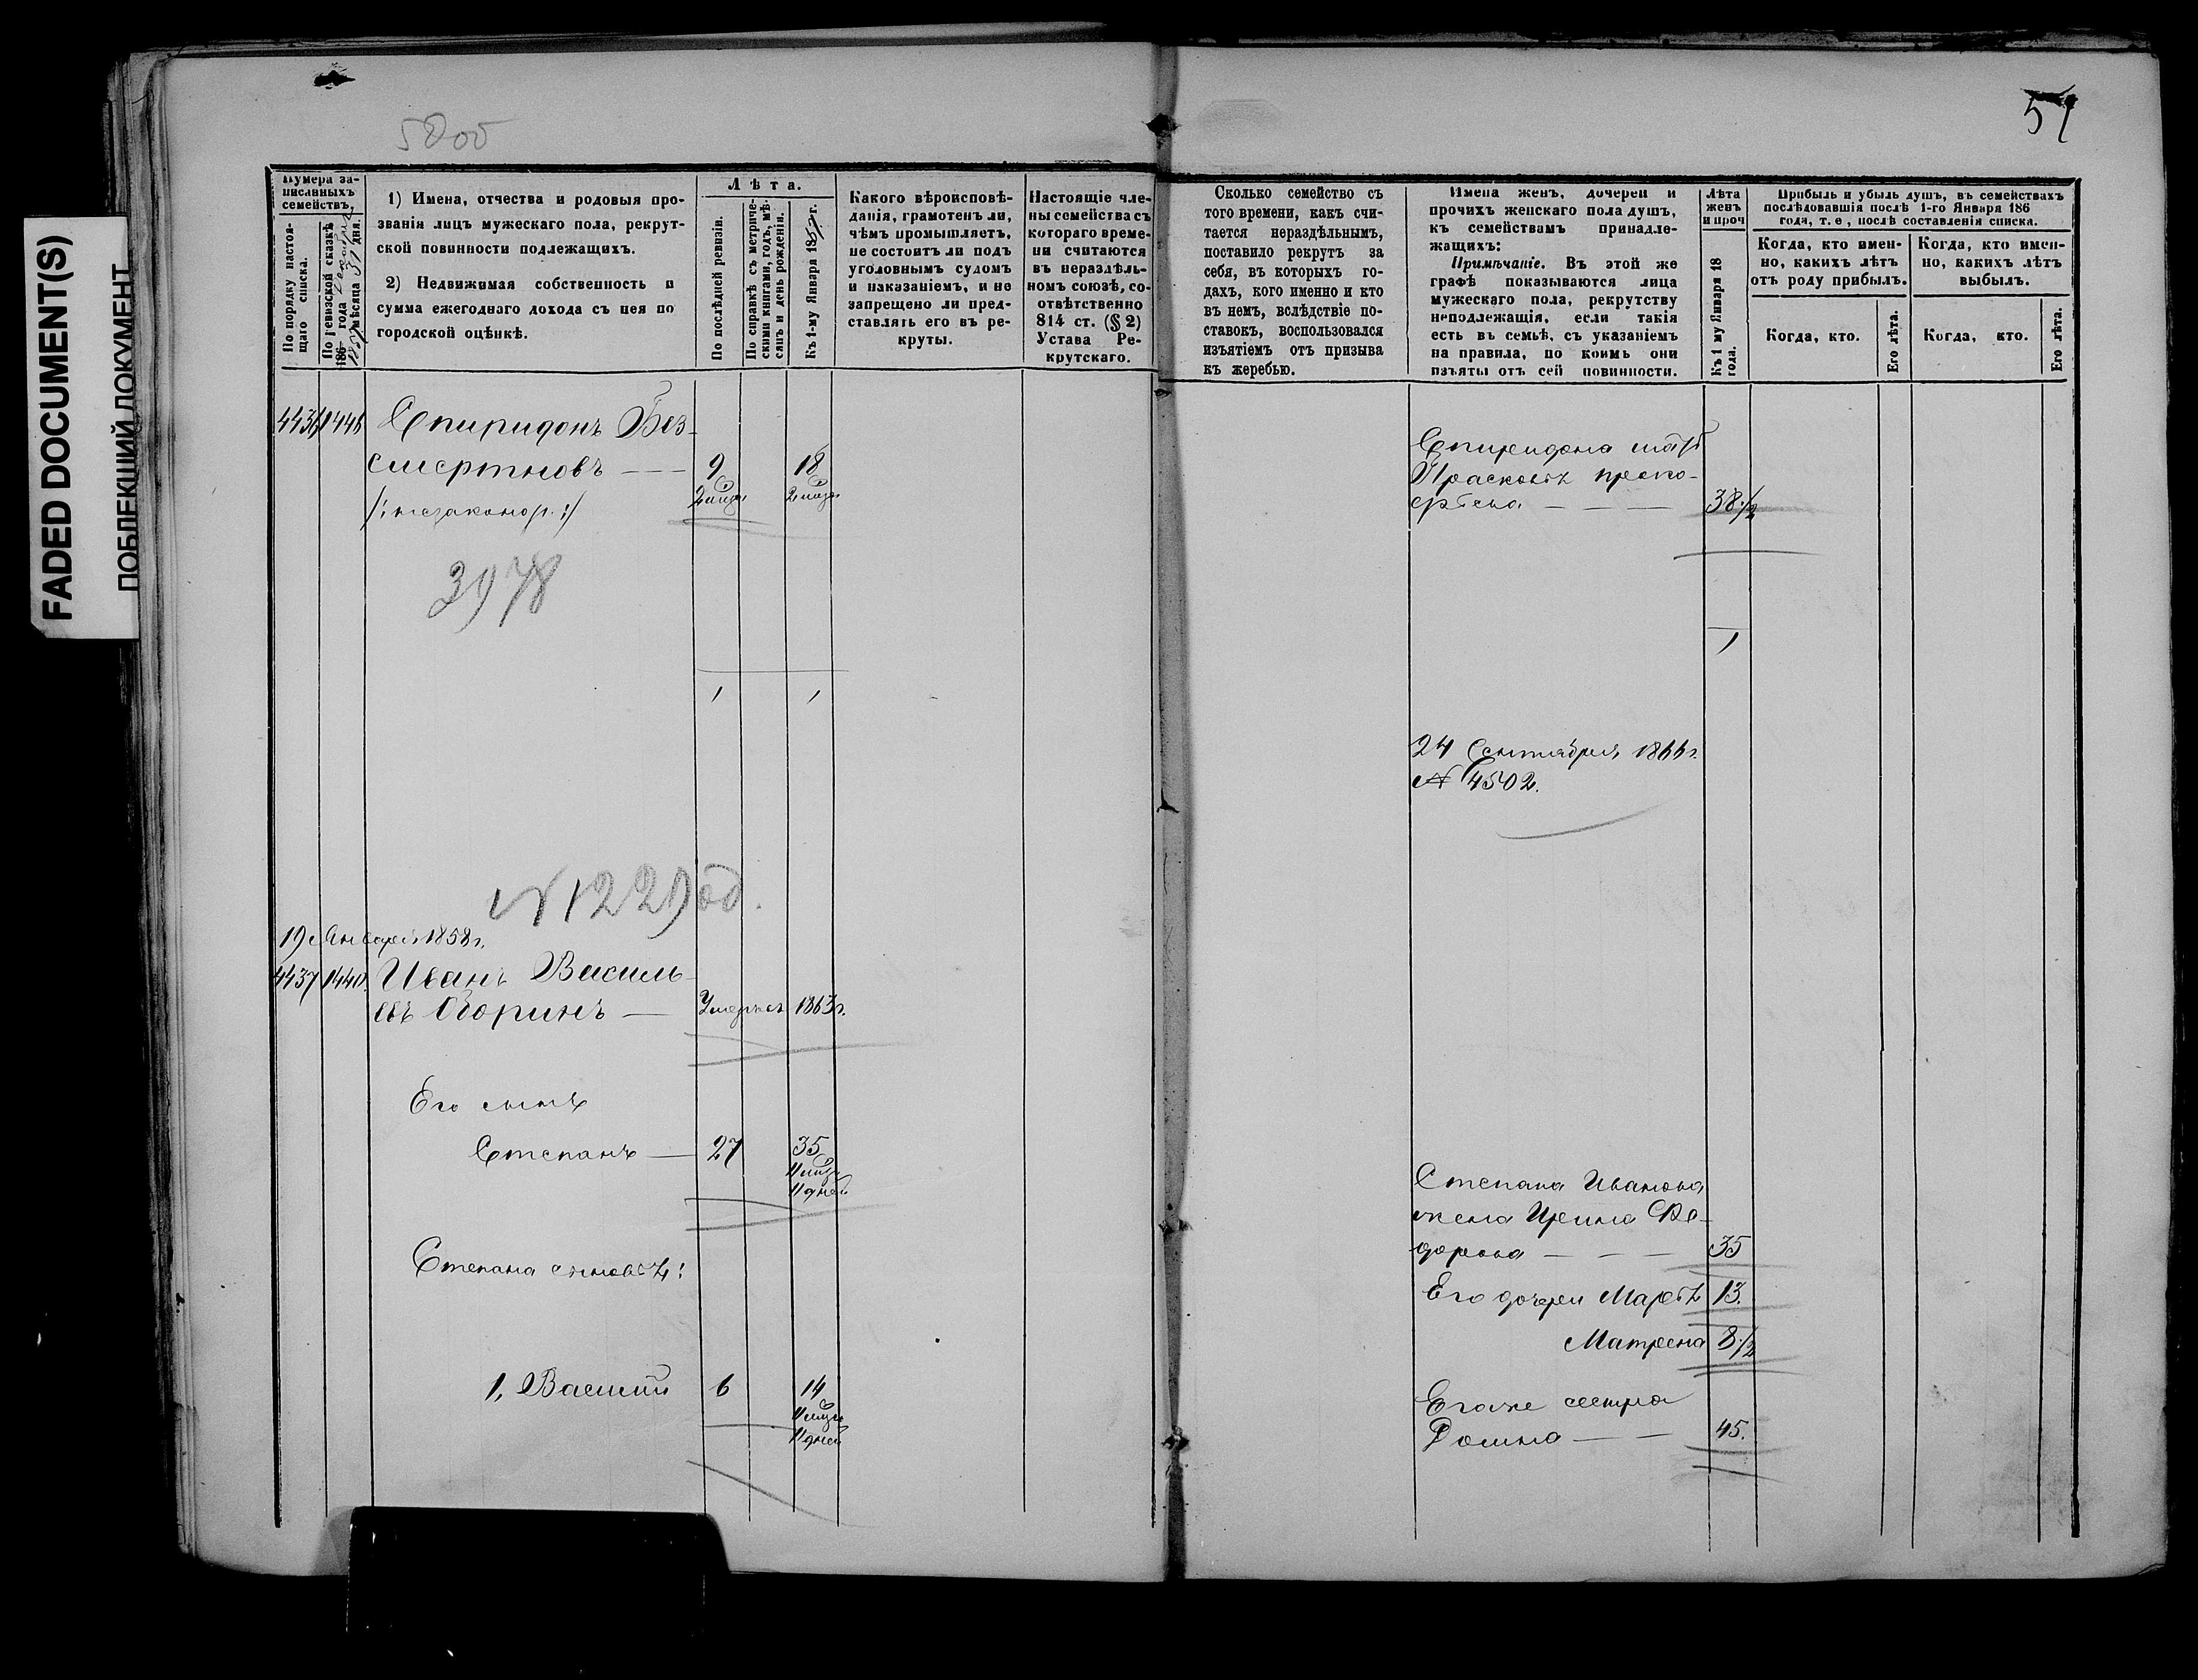 FADED DOCUMENT(S)
ПОБЛЕКШИЙ ДОКУМЕНТ
57
Нумера за-
писанныхъ
семействъ.
По порядку настоя-
щаго списка.
По ревизской сказкѣ
186 года
мѣсяца 31 дня.
1) Имена, отчества и родовыя про-
званія лицъ мужескаго пола, рекрут-
ской повинности подлежащихъ.
2) Недвижимая собственность и
сумма ежегоднаго дохода съ нея по
городской оцѣнкѣ.
Лѣта.
По послѣдней ревизіи.
По справкѣ съ метриче-
скими книгами, годъ, мѣ-
сяцъ и день рожденія.
Къ 1-му Января 18 г.
Какого вѣроисповѣ-
данія, грамотенъ ли,
чѣмъ промышляетъ,
не состоитъ ли подъ
уголовнымъ судомъ
и наказаніемъ, и не
запрещено ли пред-
ставлять его въ ре-
круты.
Настоящіе чле-
ны семейства съ
котораго време-
ни считаются
въ нераздѣль-
номъ союзѣ, со-
отвѣтственно
814 ст. (§ 2)
Устава Ре-
крутскаго.
Сколько семейство съ
того времени, какъ счи-
тается нераздѣльнымъ,
поставило рекрутъ за
себя, въ которыхъ го-
дахъ, кого именно и кто
въ немъ, вслѣдствіе по-
ставокъ, воспользовался
изъятіемъ отъ призыва
къ жеребью.
Имена женъ, дочерей и
прочихъ женскаго пола душъ,
къ семействамъ принадле-
жащихъ:
Примѣчаніе. Въ этой же
графѣ показываются лица
мужескаго пола, рекрутству
неподлежащія, если такія
есть въ семьѣ, съ указаніемъ
на правила, по коимъ они
изъяты отъ сей повинности.
Лѣта
женъ
и проч
Къ 1 му Января 18
года.
Прибыль и убыль душъ, въ семействахъ
послѣдовавшія послѣ 1-го Января 186
года, т. е, послѣ составленія списка.
Когда, кто имен-
но, какихъ лѣтъ
отъ роду прибылъ.
Когда, кто имен-
но, какихъ лѣтъ
выбылъ.
Когда, кто.
Его лѣта.
Когда, кто.
Его лѣта.
4436 1446 Спиридонъ Без-
смертновъ — 9 18
/: незаконор. :/ 2 мѣця 2 мѣця
3978
1 1
Спиридона мать
Прасковья проко-
фьева — — — 38 1/2
1
24 Сентября 1866 г.
№ 4502.
19 Января 1858 г.
4437 1440 Иванъ Василь-
евъ Зоринъ — Умеръ 1863 г.
Его сынъ
Степанъ — 27 35
11 мѣця
11 дней
Степана сыновья:
1, Василій 6 14
11 мѣця
11 дней
Степана Иванова
жена Ирина Фе-
дорова — — — 35
Его дочери Марья 13.
Матрена 8 1/2
Его же сестра
45.